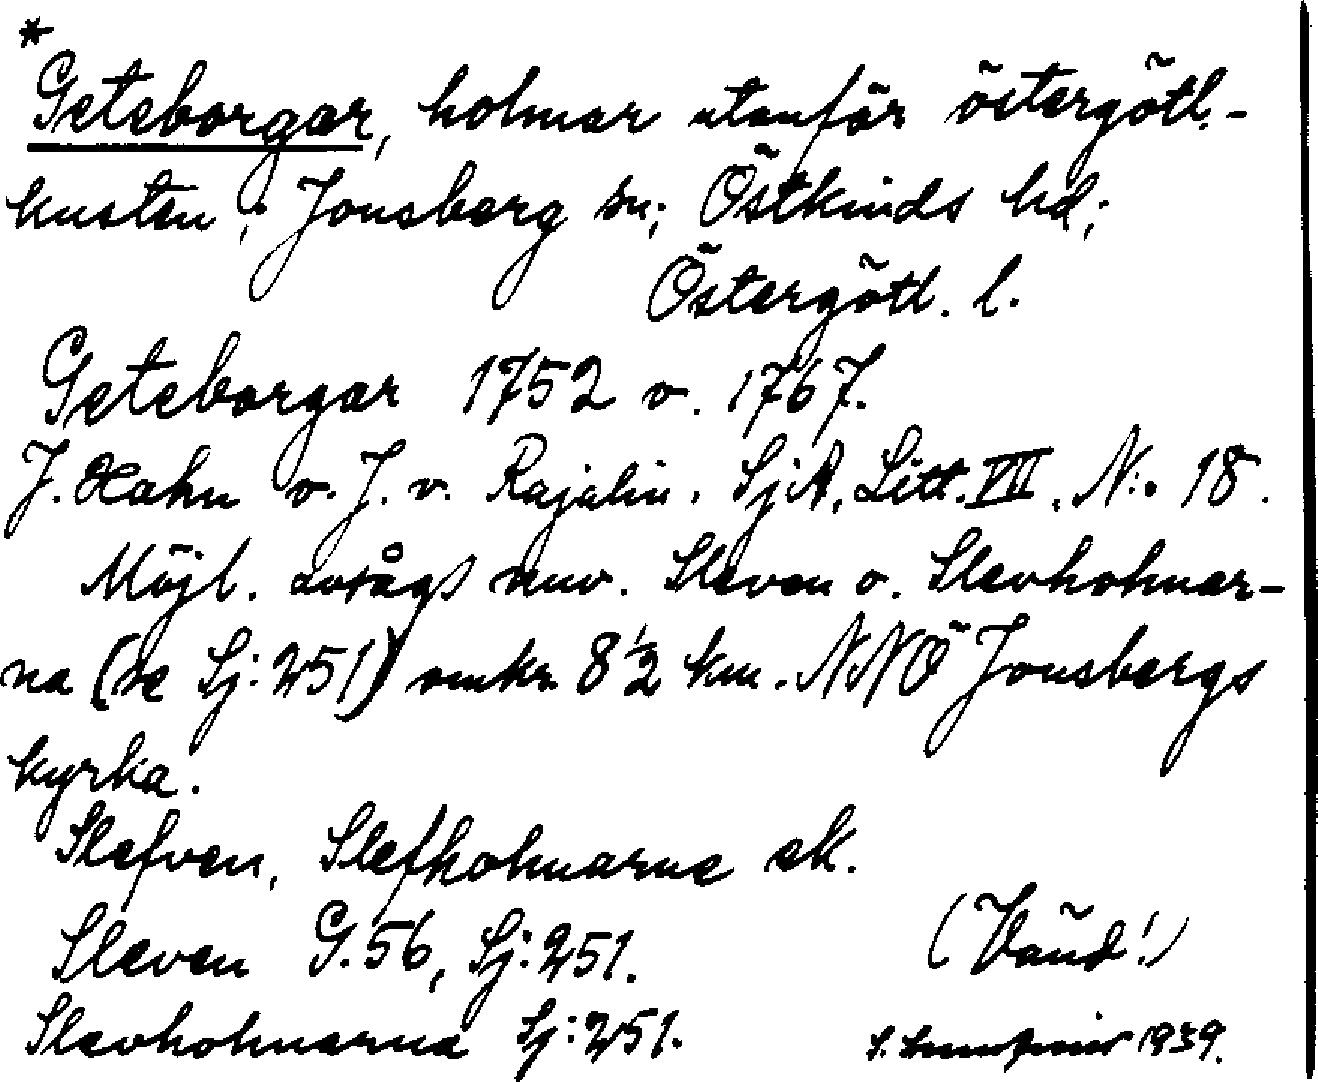 *
Geteborgar, holmar utanför östergötl.-
kusten; Jonsberg sn; Östkinds hd;
Östergötl. l.
Geteborgar 1752 o. 1767.
J. Hahn o. J. v. Rajalin. SjA, Litt. VIII, N:o 18.
Möjl. avsågs nuv. Sleven o. Slevholmar-
na (se Sj: 251) omkr. 8 1/2 km. NNÖ Jonsbergs
kyrka.
Slefven, Slefholmarne ek.
Sleven G. 56, Sj: 251.
(Vänd!)
Slevholmarna Sj: 251.
1939.